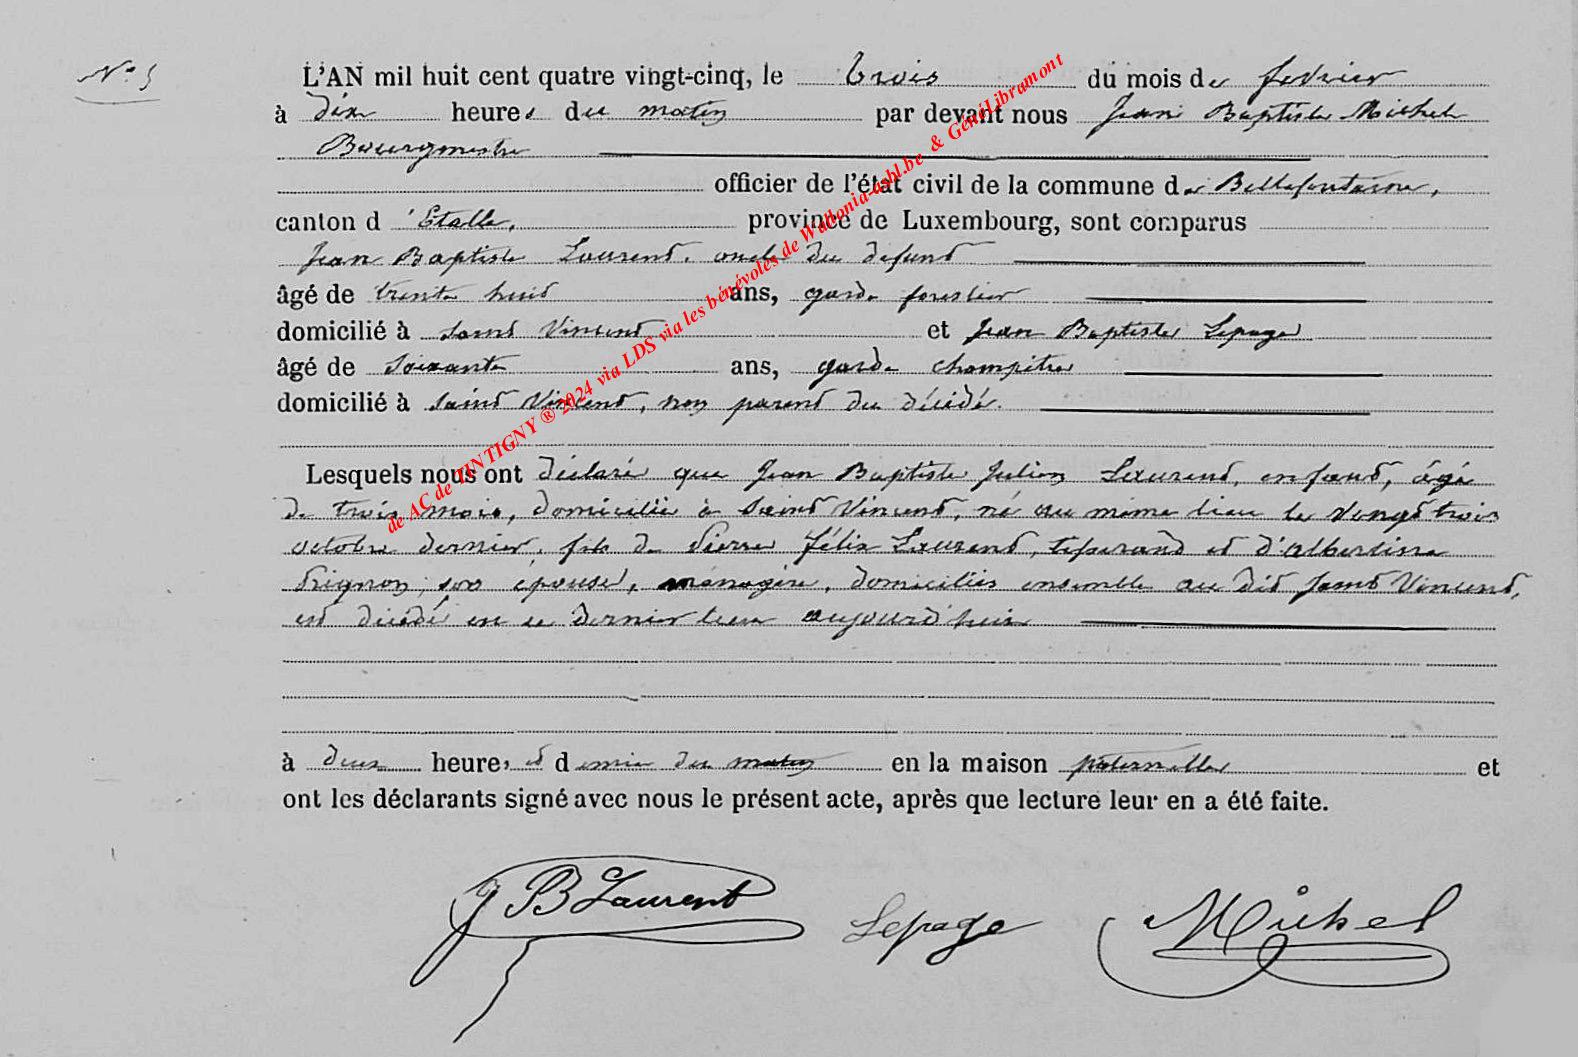 N° 5
L'AN mil huit cent quatre vingt-cinq, le trois du mois de fevrier
à dix heures du matin par devant nous Jean Baptiste Michel
Bourgmestre
officier de l'état civil de la commune de Bellefontaine,
canton d'Etalle, province de Luxembourg, sont comparus
Jean Baptiste Laurent, oncle du defunt
âgé de trente huit ans, garde forestier
domicilié à Saint Vincent et Jean Baptiste Lepage
âgé de soixante ans, garde champêtre
domicilié à Saint Vincent, non parent du décédé.
Lesquels nous ont déclaré que Jean Baptiste Julien Laurent, enfant, âgé
de trois mois, domicilié à Saint Vincent, né au meme lieu le vingt trois
octobre dernier, fils de Pierre Félix Laurent, tisserand et d'Albertine
Pignon, son épouse, ménagère, domiciliés ensemble au dit Saint Vincent,
est décédé en ce dernier lieu aujourd'hui
à deux heures et demie du matin en la maison paternelle et
ont les déclarants signé avec nous le présent acte, après que lecture leur en a été faite.
J B Laurent Lepage Michel
de AC de TINTIGNY ® 2024 via LDS via les bénévoles de Wallonia-asbl.be & GénéLibramont